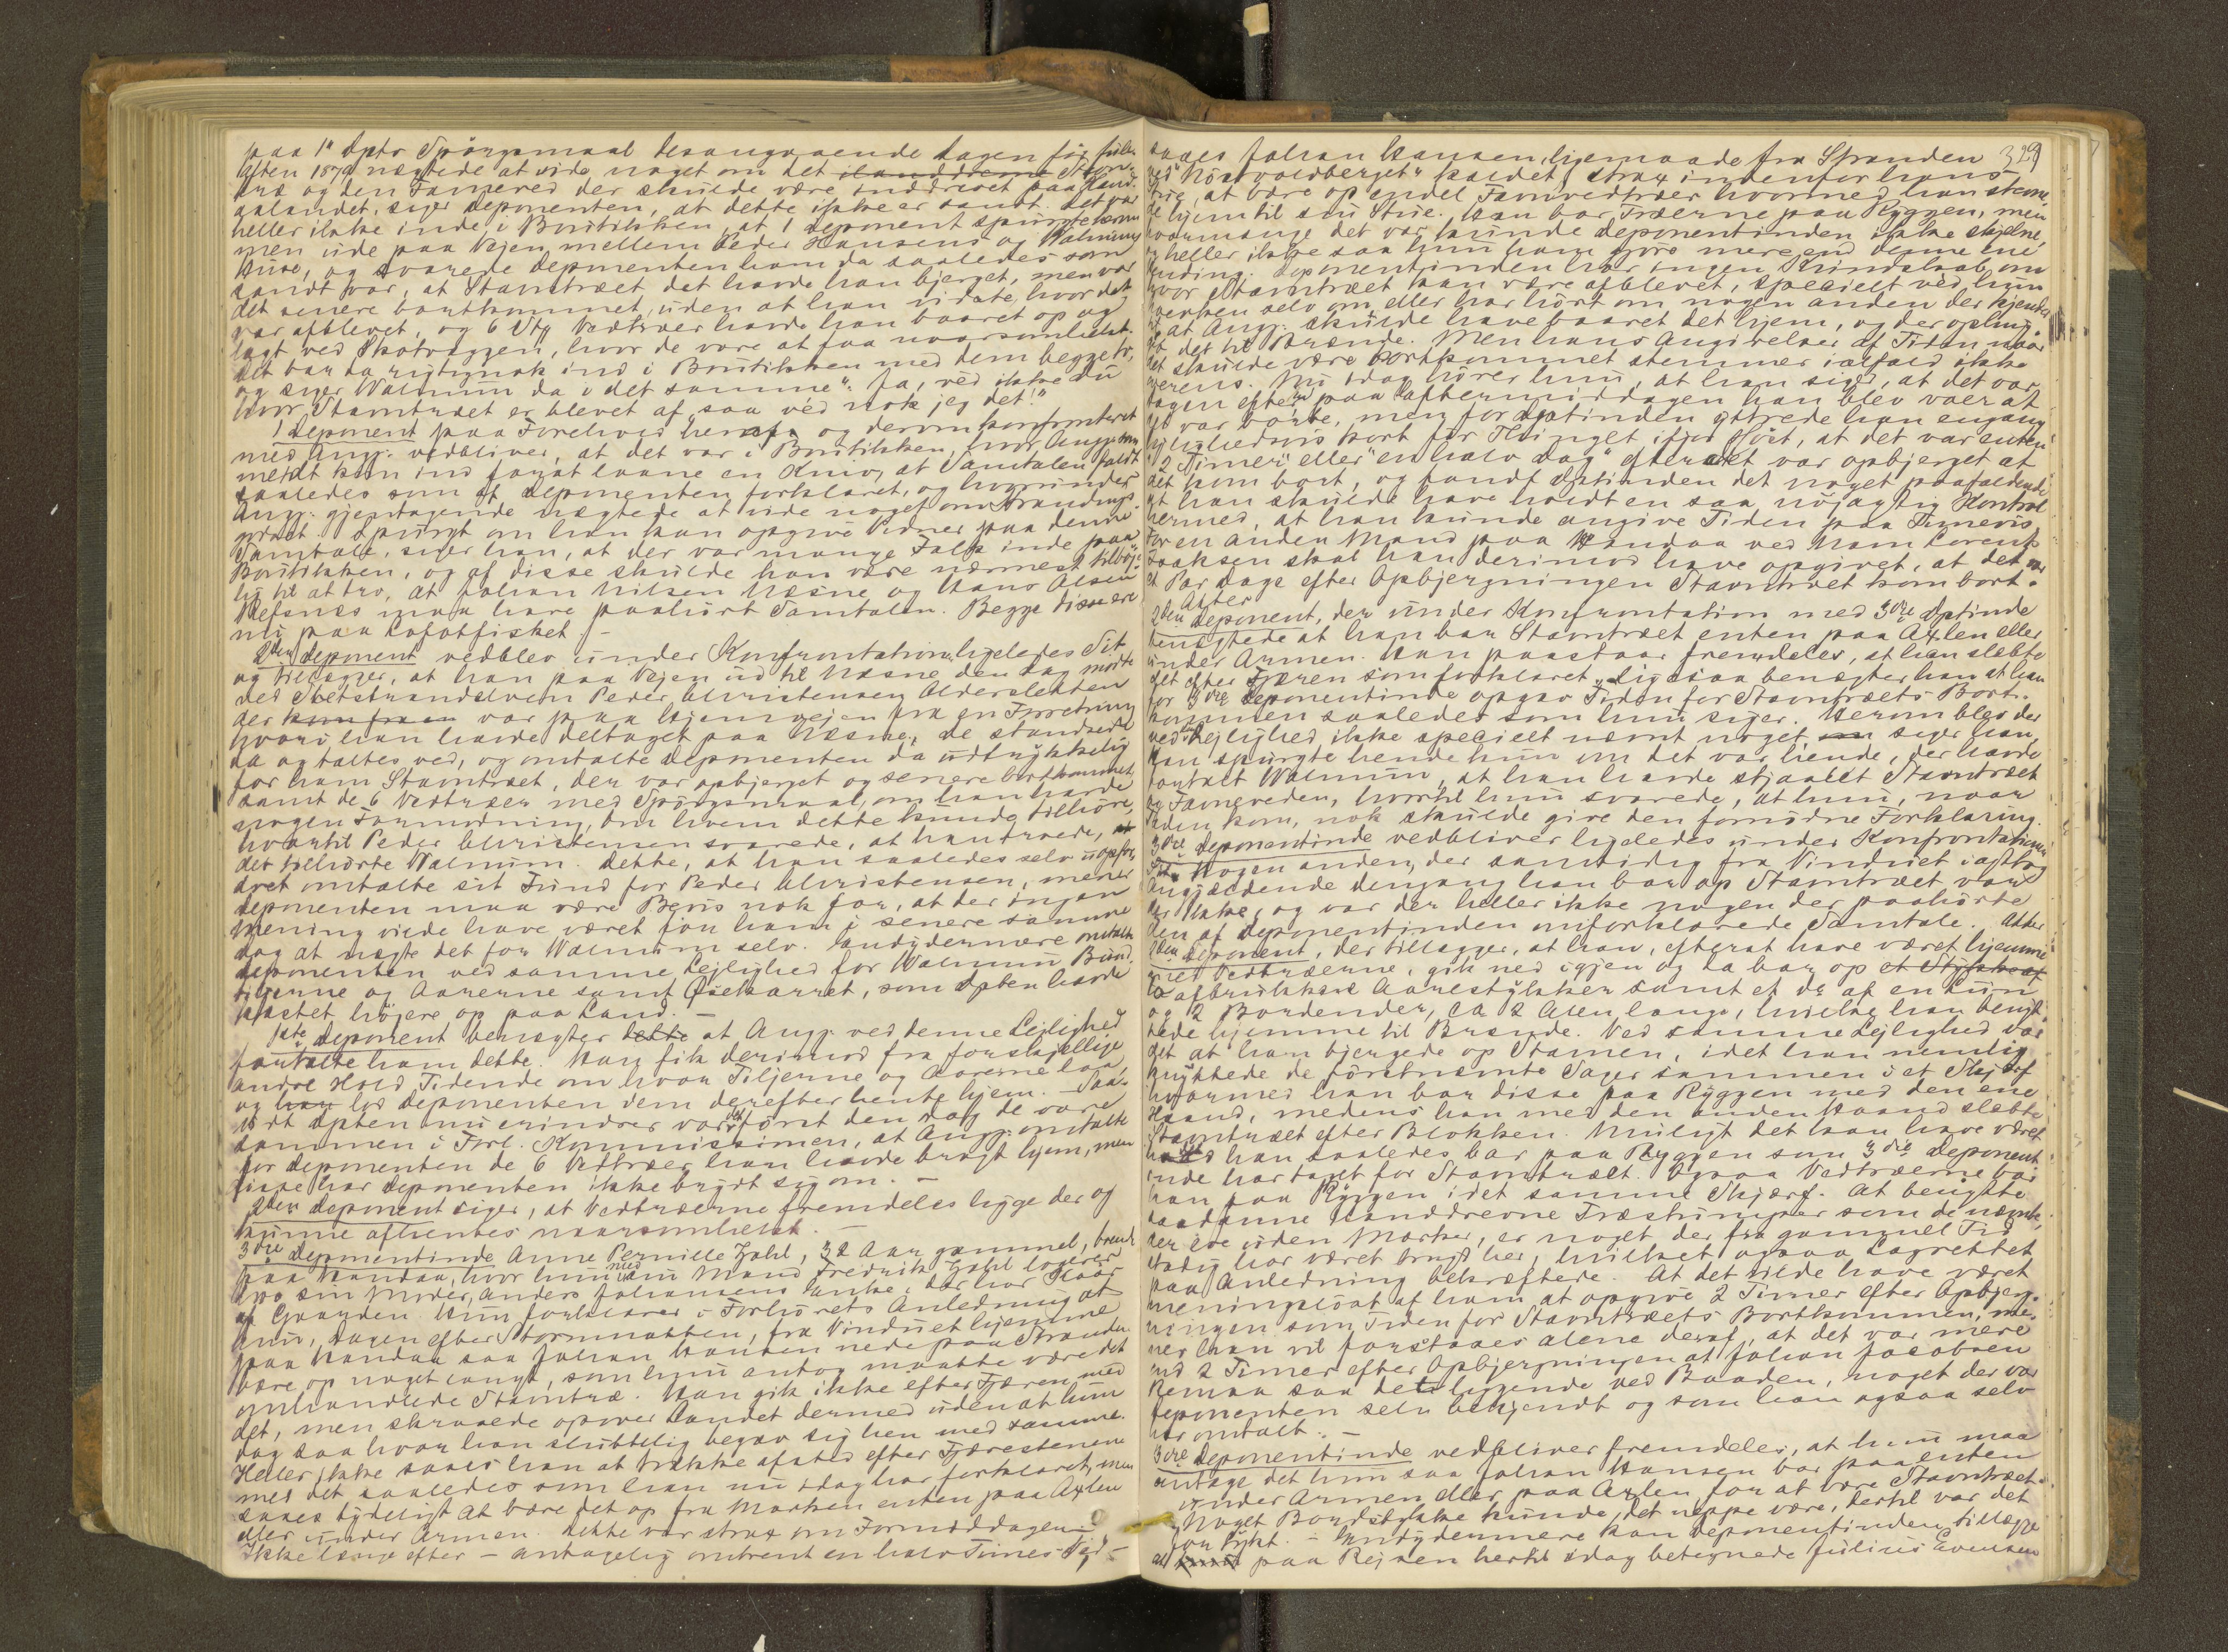 paa 1ste Dpts Spörgsmaal desangaaende dagen för Jule-
aften 1879 nægtede at vide noget om det ilanddrevne Stavn-
træ og den Favneved der skulde være inddrevet paa Hand-
aalandet, siger deponenten, at dette ikke er sandt. Det var
heller ikke inde i Boutikken, at 1 deponent spurgte herom
men ude paa Vejen mellem Peder Hansens og Walnums
Huse, og svarede deponenten ham da saaledes som
sandt var, at Stavntræet det havde han bjerget, men var
det senere bortkommet, uden at han vidste, hvor det
var afblevet, og 6 Stk Vedtræer havde han baaret op og
lagt ved Skotvæggen, hvor de vare at faa naarsomhelst.
Det bar da rigtignok ind i Boutikken med dem begge to,
og siger Walnum da i det samme: "Ja, véd ikke du
hvor Stavntræet er blevet af, saa véd nok jeg det!"
1 deponent paa Forehold heraf og derom konfronteret
med Angj. vedbliver, at det var i Boutikken, hvor Angj. kom
ind for at laane en Kniv, at Samtalen faldt
saaledes som af deponenten forklaret, og hvorunder
Angj. gjentagende nægtede at vide noget om Strandings-
godset. Spurgt om han kan opgive Vidner paa denne
Samtale, siger han, at der var mange Folk inde paa
Boutikken, og af disse skulde han være nærmest tilböje-
lig til at tro, at Johan Nilsen Næsne og Hans Olsen
Refsnes maa have paahört Samtalen. Begge disse ere
nu paa Lofotfisket. –
2den deponent vedblev under Konfrontationen ligeledes Sit
og tillægger, at han paa Vejen ud til Næsne den dag mödte
ved Stetstrandelven Peder Christensen Alderslekten
der kom fra en var paa Hjemvejen fra en Forretning
hvori han havde deltaget paa Næsne, de standsede
da og taltes ved, og omtalte deponenten da udtrykkelig
for ham Stavntræet, der var opbjerget og senere bortkommet,
samt de 6 Vedtræer med Spörgsmaal, om han havde
nogen Formodning, om hvem dette kunde tilhöre,
hvortil Peder Christensen svarede, at han troede, at
det tilhörte Walnum. Dette, at han saaledes selv uopfor-
dret omtalte sit Fund for Peder Christensen, mener
deponenten maa være Bevis nok for, at der ingen
Mening vilde have været for ham i senere samme
dag at nægte det for Walnum selv. Endydermere omtalte
deponenten ved samme Lejlighed for Walnum Bund-
tiljerne og Aarerne samt Öscharret, som Dpten havde
kastet höjere op paa Land. –
1ste deponent benægter dette at Angj. ved denne Lejlighed
fortalte ham dette. Han fik derimod fra forskjellige
andre Hold Tidende om hvor Tiljerne og Aarerne laa,
og han lod deponenten dem derefter hente hjem. – Saa-
vidt dpten nu erindrer var det först den dag de vare
sammen i Forl. Kommissionen, at Angj. omtalte
for deponenten de 6 Vedtræer han havde bragt hjem, men
disse har deponenten ikke brydt sig om. –
2den deponent siger, at Vedtræerne fremdeles ligge der og
kunne afhentes naarsomhelst. –
3die deponentinde Anne Pernille Zahl, 32 Aar gammel, boende
paa Handaa, hvor hun med sin Mand Fredrik Zahl logerer
hos sin Moder, Anders Johansens Enke, der har Kaar
af Gaarden. Hun forklarer i Forhörets Anledning at
hun, dagen efter Stormnatten, fra Vinduet hjemme
paa Handaa saa Johan Hansen nede paa Stranden
bære op noget langt, som hun antog maatte være det
omhandlede Stavntræ. Han gik ikke efter Fjæren med
det, men skraaede opover Landet dermed uden at hun
dog saa hvor han sluttelig begav sig hen med samme.
Heller ikke saaes han at trække afsted efter Fjærestenene
med det saaledes som han nu idag har forklaret, men
saaes tydeligt at bære det op fra Marken enten paa Axlen
eller under Armen. Dette var strax om Formiddagen –
Ikke længe efter – antagelig omtrent en halv Times Tid –
329
saaes Johan Hansen, ligemaade fra Stranden
ved "Nöstvoldberget" kaldet, strax indenfor hans
Stue, at bære op endel Favnvedtræer hvormed han stævne-
de hjem til sin Stue. Han bar Træerne paa Ryggen, men
hvormange det var kunde deponentinden ikke skjelne,
og heller ikke saa hun ham gjöre mere end denne ene
Vending. Deponentinden har ingen Kundskab om
hvor Stavntræet kan være afblevet, specielt véd hun
hverken selv om eller har hört om nogen anden der kjender
til, at Angj. skulde have baaret det hjem, og der ophug-
get det til Brænde. Men hans Angivelser af Tiden naar
det skulde være bortkommet stemmer ialfald ikke
overens. Nu idag hörer hun, at han siger, at det var
dagen efter paa Eftermiddagen han blev vaer at
det var borte, men for dptinden yttrede han engang
lejlighedsvis kort för Thinget ifjor Höst, at det var enten
"2 Timer" eller "en halv dag" efterat det var opbjerget at
det kom bort, og fandt dptinden det noget paafaldende
at han skulde have holdt en saa nöjagtig Kontrol
hermed, at han kunde angive Tiden paa Timevis.
For en anden Mand paa Handaa ved Navn Lorents
Isaksen skal han derimod have opgivet, at det var
et Par dage efter Opbjergningen Stavntræet kom bort.
Atter
2den deponent, der under Konfrontation med 3die dptinde
benægtede at han bar Stavntræet enten paa Axlen eller
under Armen. Han paastaar fremdeles, at han slæbte
det efter Fjæren som forklaret. Ligesaa benægter han at han
for 3die deponentinde opgav Tiden for Stavntræets Bort-
kommen saaledes som hun siger. Herom blev der
ved den Lejlighed ikke specielt nævnt noget om siger han.
Han spurgte hende kun om det var hende, der havde
fortalt Walnum, at han havde stjaalet Stavntræet
og Favneveden, hvortil hun svarede, at hun, naar
Tiden kom, nok skulde give den fornödne Forklaring.
3die deponentinde vedbliver ligeledes under Konfrontationen
Sit. Nogen anden, der samtidig fra Vinduet iagttog
Angjældende dengang han bar op Stavntræet var
der ikke, og var der heller ikke nogen der paahörte
den af deponentinden omforklarede Samtale. Atter
2den deponent, der tillægger, at han, efterat have været hjemme
med Vedtræerne, gik ned igjen og da bar op et Stykke af
to afbrukkne Aarestykker samt et do af en Lun
og 2 Bordender, ca 2 Alen lange, hvilke han benyt-
tede hjemme til Brænde. Ved samme Lejlighed var
det at han bjergede op Stavnen, idet han nemlig
knyttede de förstnævnte Sager sammen i et Skjærf
hvormed han bar disse paa Ryggen med den ene
Haand, medens han med den anden Haand slæbte
Stavntræet efter Blokken. Muligt det kan have været
hvad han saaledes bar paa Ryggen som 3die deponent-
inde har taget for Stavntræet. Ogsaa Vedtræerne bar
han paa Ryggen i det samme Skjærf. At benytte
saadanne ilanddrevne Træstumper som de nævnte,
der ere uden Mærker, er noget der fra gammel Tid
stadig har været brugt her, hvilket ogsaa Lagrettet
paa Anledning bekræftede. At det vilde have været
meningslöst af ham at opgive 2 Timer efter Opbjerg-
ningen som Tiden for Stavntræets Bortkommen, me-
ner han vil forstaaes alene deraf, at det var mere
end 2 Timer efter Opbjergningen at Johan Jacobsen
Remaa saa det liggende ved Baaden, noget der var
deponenten selv bekjendt og som han ogsaa selv
har omtalt. –
3die deponentinde vedbliver fremdeles, at hun maa
antage det hun saa Johan Hansen bar paa enten
under Armen eller paa Axlen for at være Stavntræet.
Noget Bordstykke kunde det neppe være, dertil var det
for tykt. – Endydermere kan deponentinden tillægge
at paa Rejsen hertil idag betegnede Julius Evensen